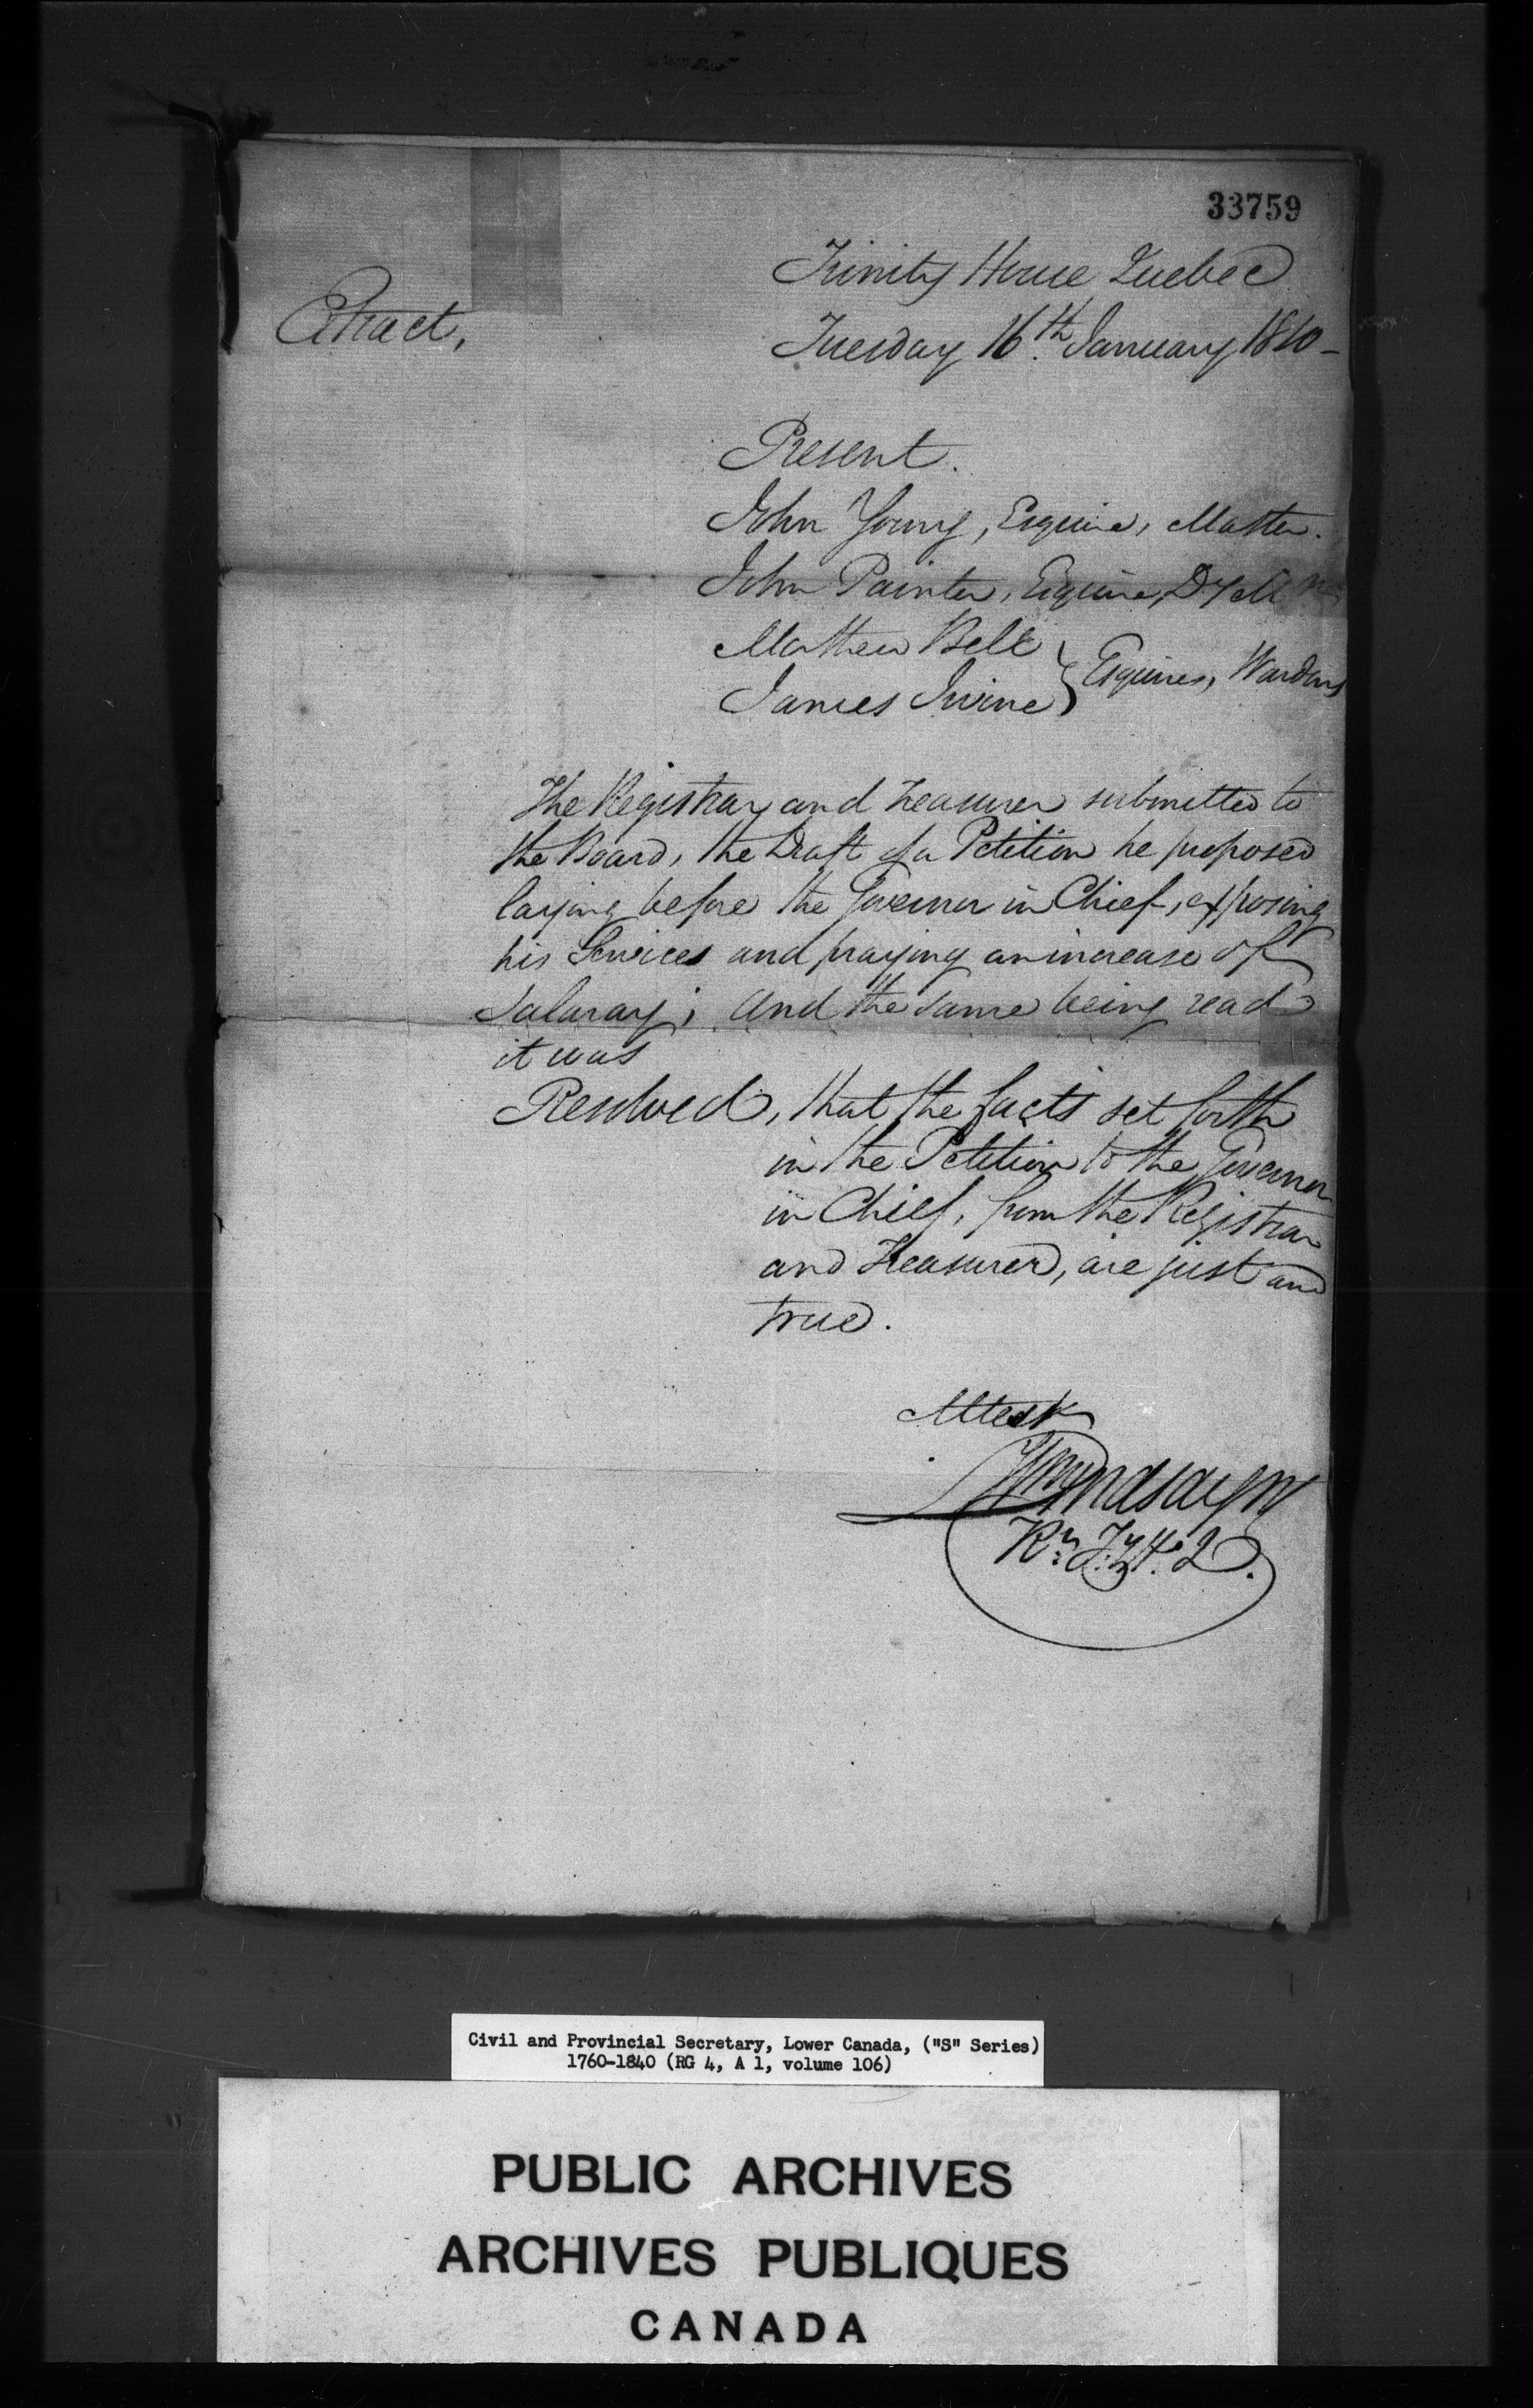 33759
Trinity House Quebec
Extract,
Tuesday 16th. January 1810-
Present.
John Young, Esquire, Master.
John Painter, Esquire, Dy
Mathew Bell
Esquires, Wardens
James Irvine
The Registrar and Treasurer submitted to
the Board, the Draft of a Petition he proposed
laying before the Governor in Chief, exposing
his Services and praying an increase of
Salaray; and the same being read
it was
Resolved, that the facts set forth
in the Petition to the Governor
in Chief, from the Registrar
and Treasurer, are just and
true.
Attest
Wm Lindsay
Rr. Ty H. Q.
Civil and Provincial Secretary, Lower Canada, ("S" Series)
1760-1840 (RG 4, A 1, volume 106)
PUBLIC ARCHIVES
ARCHIVES PUBLIQUES
CANADA